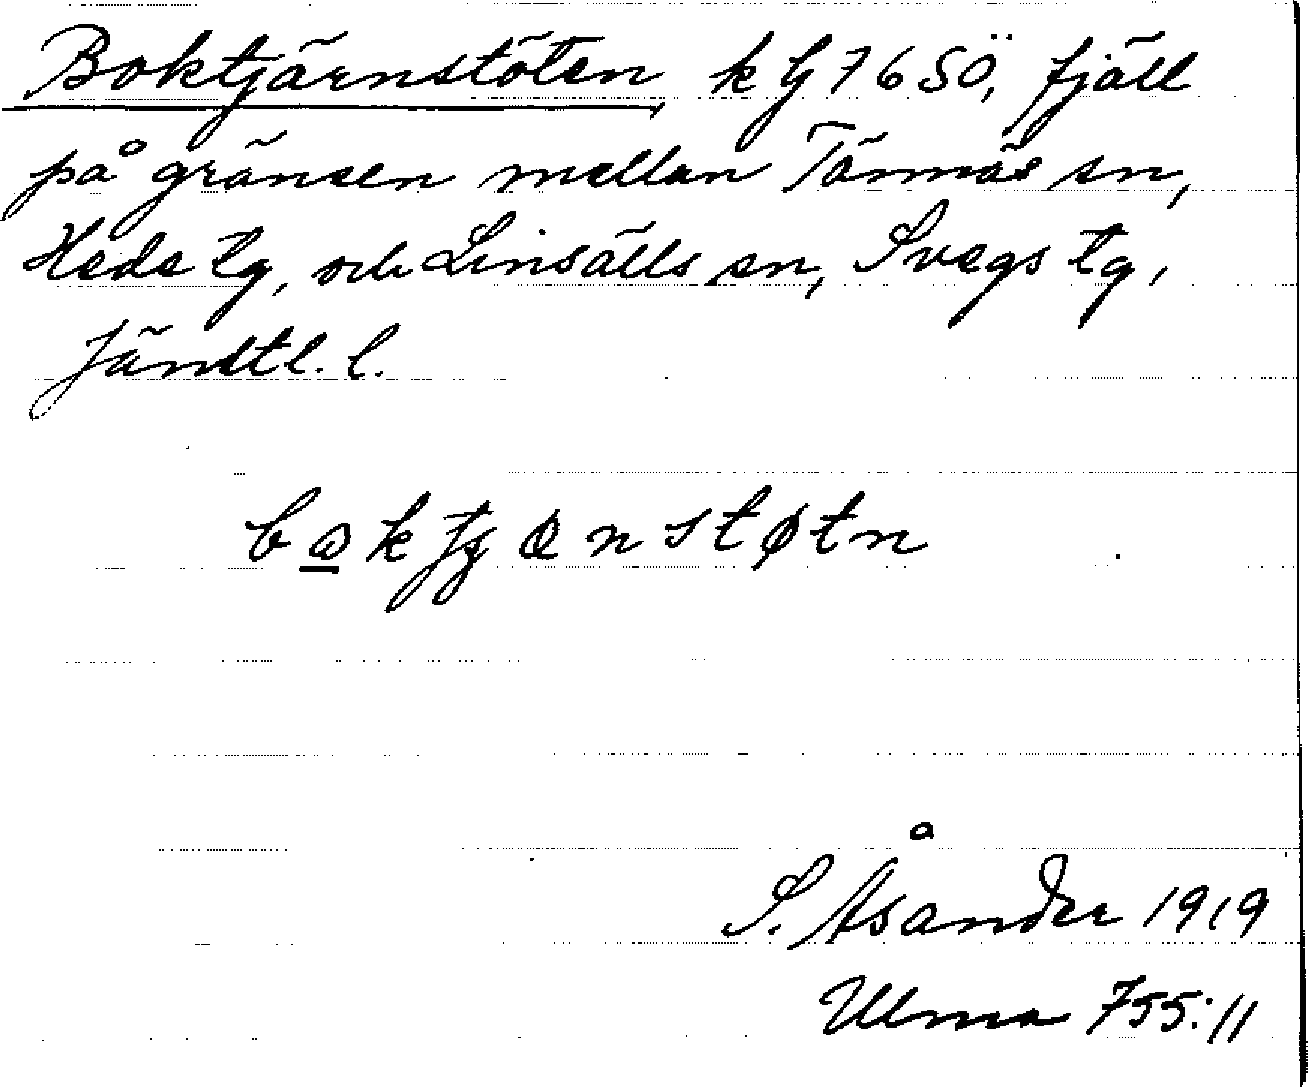 Boktjärnstöten, k G 76 SÖ, fjäll
på gränsen mellan Tännäs sn,
Hede tg, och Linsälls sn, Svegs tg,
Jämtl. l.
S. Åsander 1919
Ulma 755:11